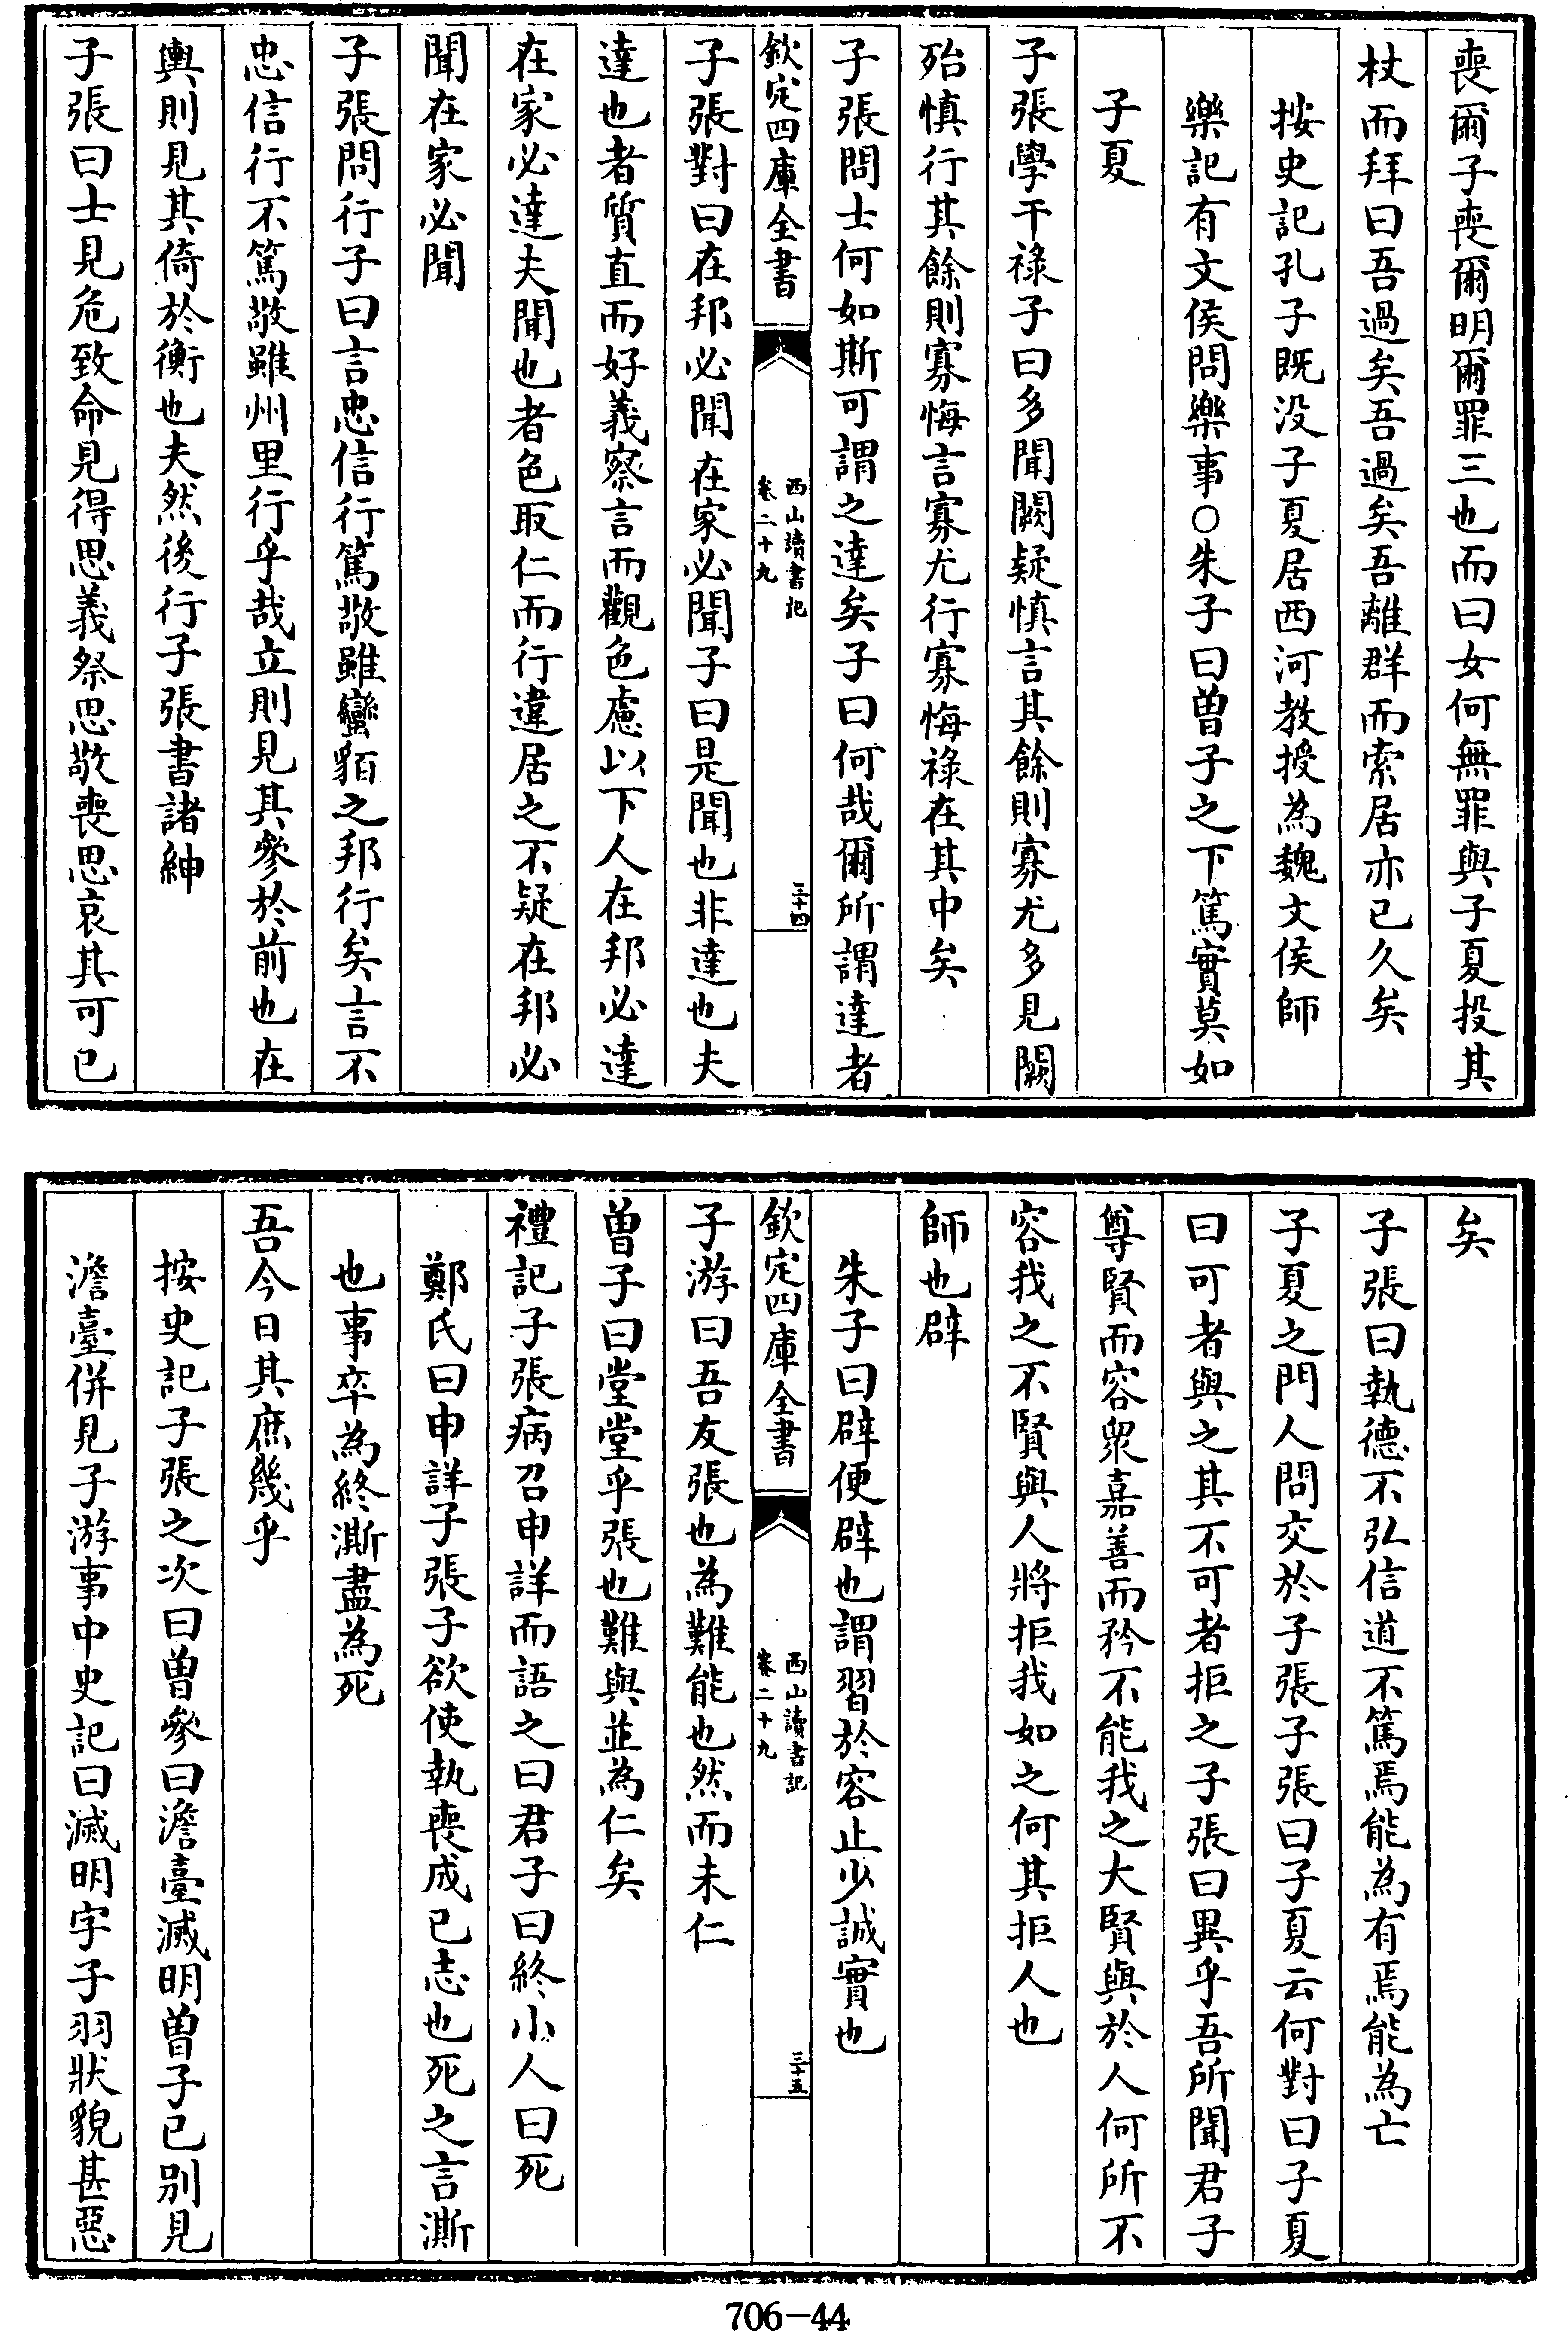 喪爾子喪爾明爾罪三也而曰女何無罪與子夏投其
杖而拜曰吾過矣吾過矣吾離群而索居亦已久矣
按史記孔子既没子夏居西河教授為魏文侯師
樂記有文侯問樂事○朱子曰曽子之下篤實莫如
子夏
子張學干祿子曰多聞闕疑慎言其餘則寡尤多見闕
殆慎行其餘則寡悔言寡尤行寡悔祿在其中矣
子張問士何如斯可謂之達矣子曰何哉爾所謂達者
欽定四庫全書
西山讀書記
卷二十九
三十四
子張對曰在邦必聞在家必聞子曰是聞也非達也夫
達也者質直而好義察言而觀色慮以下人在邦必達
在家必達夫聞也者色取仁而行違居之不疑在邦必
聞在家必聞
子張問行子曰言忠信行篤敬雖蠻貊之邦行矣言不
忠信行不篤敬雖州里行乎哉立則見其參於前也在
輿則見其倚於衡也夫然後行子張書諸紳
子張曰士見危致命見得思義祭思敬喪思哀其可已
矣
子張曰執德不弘信道不篤焉能為有焉能為亡
子夏之門人問交於子張子張曰子夏云何對曰子夏
曰可者與之其不可者拒之子張曰異乎吾所聞君子
尊賢而容衆嘉善而矜不能我之大賢與於人何所不
容我之不賢與人將拒我如之何其拒人也
師也辟
朱子曰辟便辟也謂習於容止少誠實也
欽定四庫全書
西山讀書記
卷二十九
三十五
子游曰吾友張也為難能也然而未仁
曽子曰堂堂乎張也難與並為仁矣
禮記子張病召申詳而語之曰君子曰終小人曰死
鄭氏曰申詳子張子欲使執喪成已志也死之言澌
也事卒為終澌盡為死
吾今日其庶幾乎
按史記子張之次曰曽參曰澹臺滅明曽子已別見
澹臺併見子游事中史記曰滅明字子羽狀貌甚惡
706-44